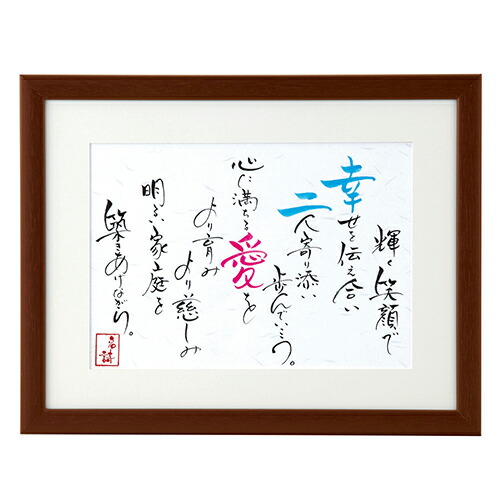 輝く笑顔で
幸せを伝え合い
二人寄り添い
歩んでいこう。
心に満ちる愛を
より育み
より慈しみ
明るい家庭を
築きあげながら。